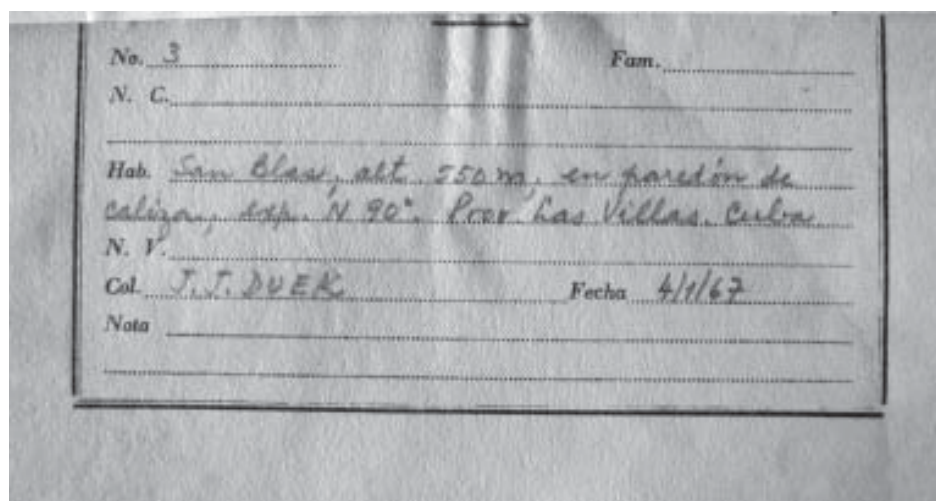 No. 3 Fam.
N. C.
Hab. San Blas, alt. 550 m, en paredón de
caliza, exp. N 90°. Prov Las Villas. Cuba
N. V.
Col. J.J. DUEK Fecha 4/1/67
Nota